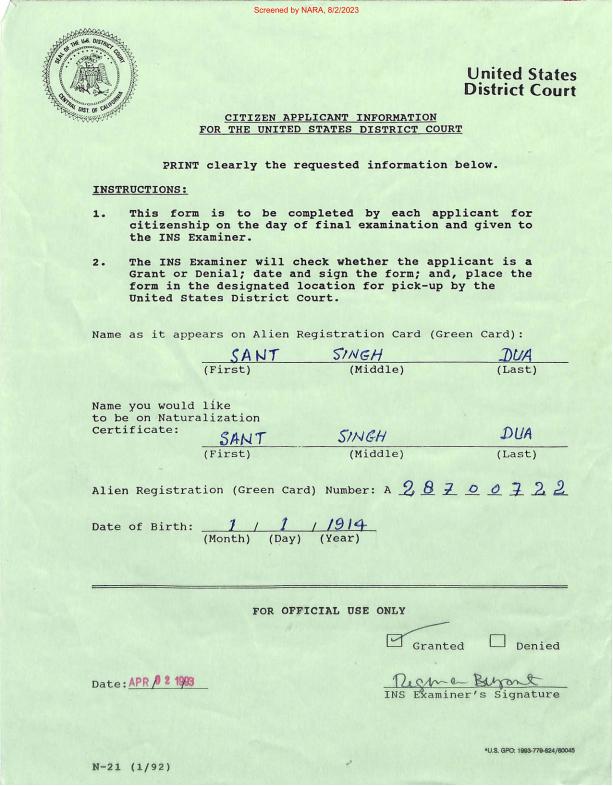 Screened by NARA, 8/2/2023
SEAL OF THE U.S. DISTRICT COURT
CENTRAL DIST. OF CALIFORNIA
United States
District Court
CITIZEN APPLICANT INFORMATION
FOR THE UNITED STATES DISTRICT COURT
PRINT clearly the requested information below.
INSTRUCTIONS:
1. This form is to be completed by each applicant for
citizenship on the day of final examination and given to
the INS Examiner.
2. The INS Examiner will check whether the applicant is a
Grant or Denial; date and sign the form; and, place the
form in the designated location for pick-up by the
United States District Court.
Name as it appears on Alien Registration Card (Green Card):
SANT SINGH DUA
(First) (Middle) (Last)
Name you would like
to be on Naturalization
Certificate:
SANT SINGH DUA
(First) (Middle) (Last)
Alien Registration (Green Card) Number: A 2 8 7 0 0 7 2 2
Date of Birth: 1 / 1 / 1914
(Month) (Day) (Year)
FOR OFFICIAL USE ONLY
Granted Denied
Date: APR 02 1993
INS Examiner's Signature
*U.S. GPO: 1993-779-624/60045
N-21 (1/92)